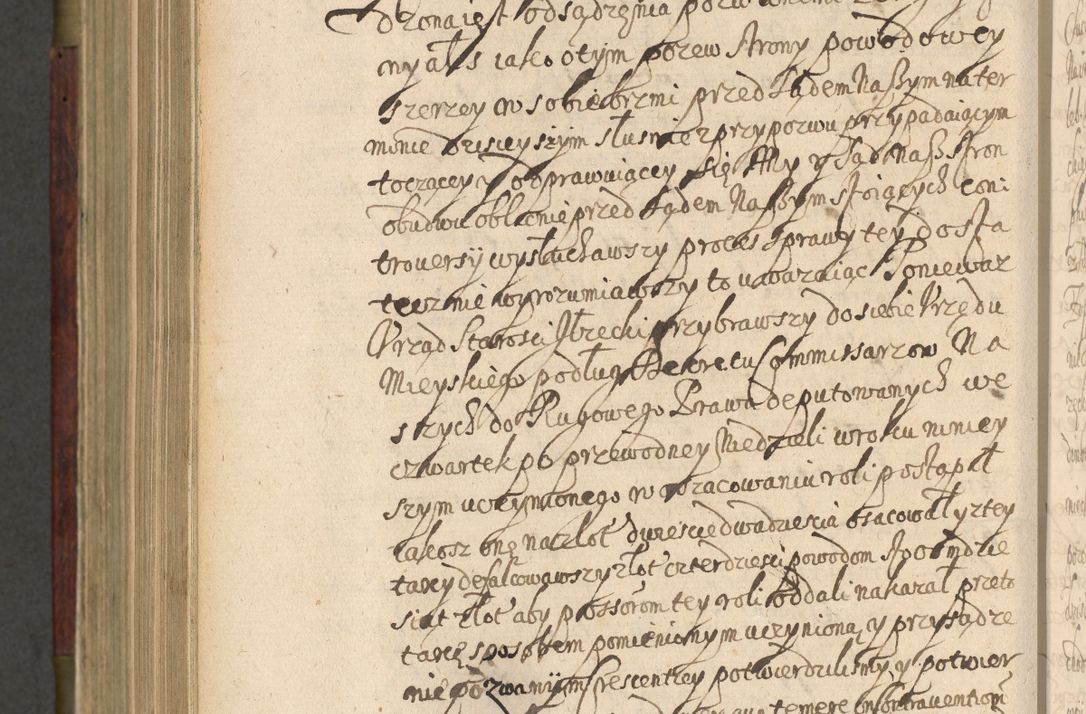 dzona iest odsądzenia pozwanemi
ny ał s iako o tym pozew strony powodowey
szerzey w sobie brzmi przed Sądem Naszym na ter
minie dzisieyszym słusznie z przypozwu przypadaiącym
toczącey y odprawuiącey się My y Sąd Nasz stron
obudwu oblicznie przed Sądem Naszym stoiących con
troversij wysłuchawszy proces sprawy tey dosta
tecznie wyrozumiawszy to uwazaiąc Poniewaz
Urząd Starosci Iłzecki przybrawszy do siebie Urzędu
Mieyskiego podług Dekretu Commissarzow Na
szych do Rugowego Prawa deputowanych we
czwartek po przewodney Niedzieli w roku niniey
szym uczynionego w oszacowaniu roli postąpił
iakosz onę na złot dwiescie dwadziescia osacował y z tey
taxy defalcowawszy złot czterdziesci powodom sto osmdzie
siąt złot aby possorom tey roli oddali nakazał przeto
taxę sposobem pomienionym uczynioną y przysądze
nie pozwanym Crescentiey potwierdzilismy y potwier
temere contravention